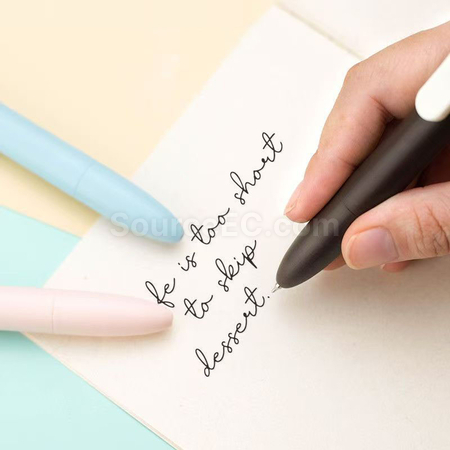 fe is too short
to skip
dessert.
SourceEC.com